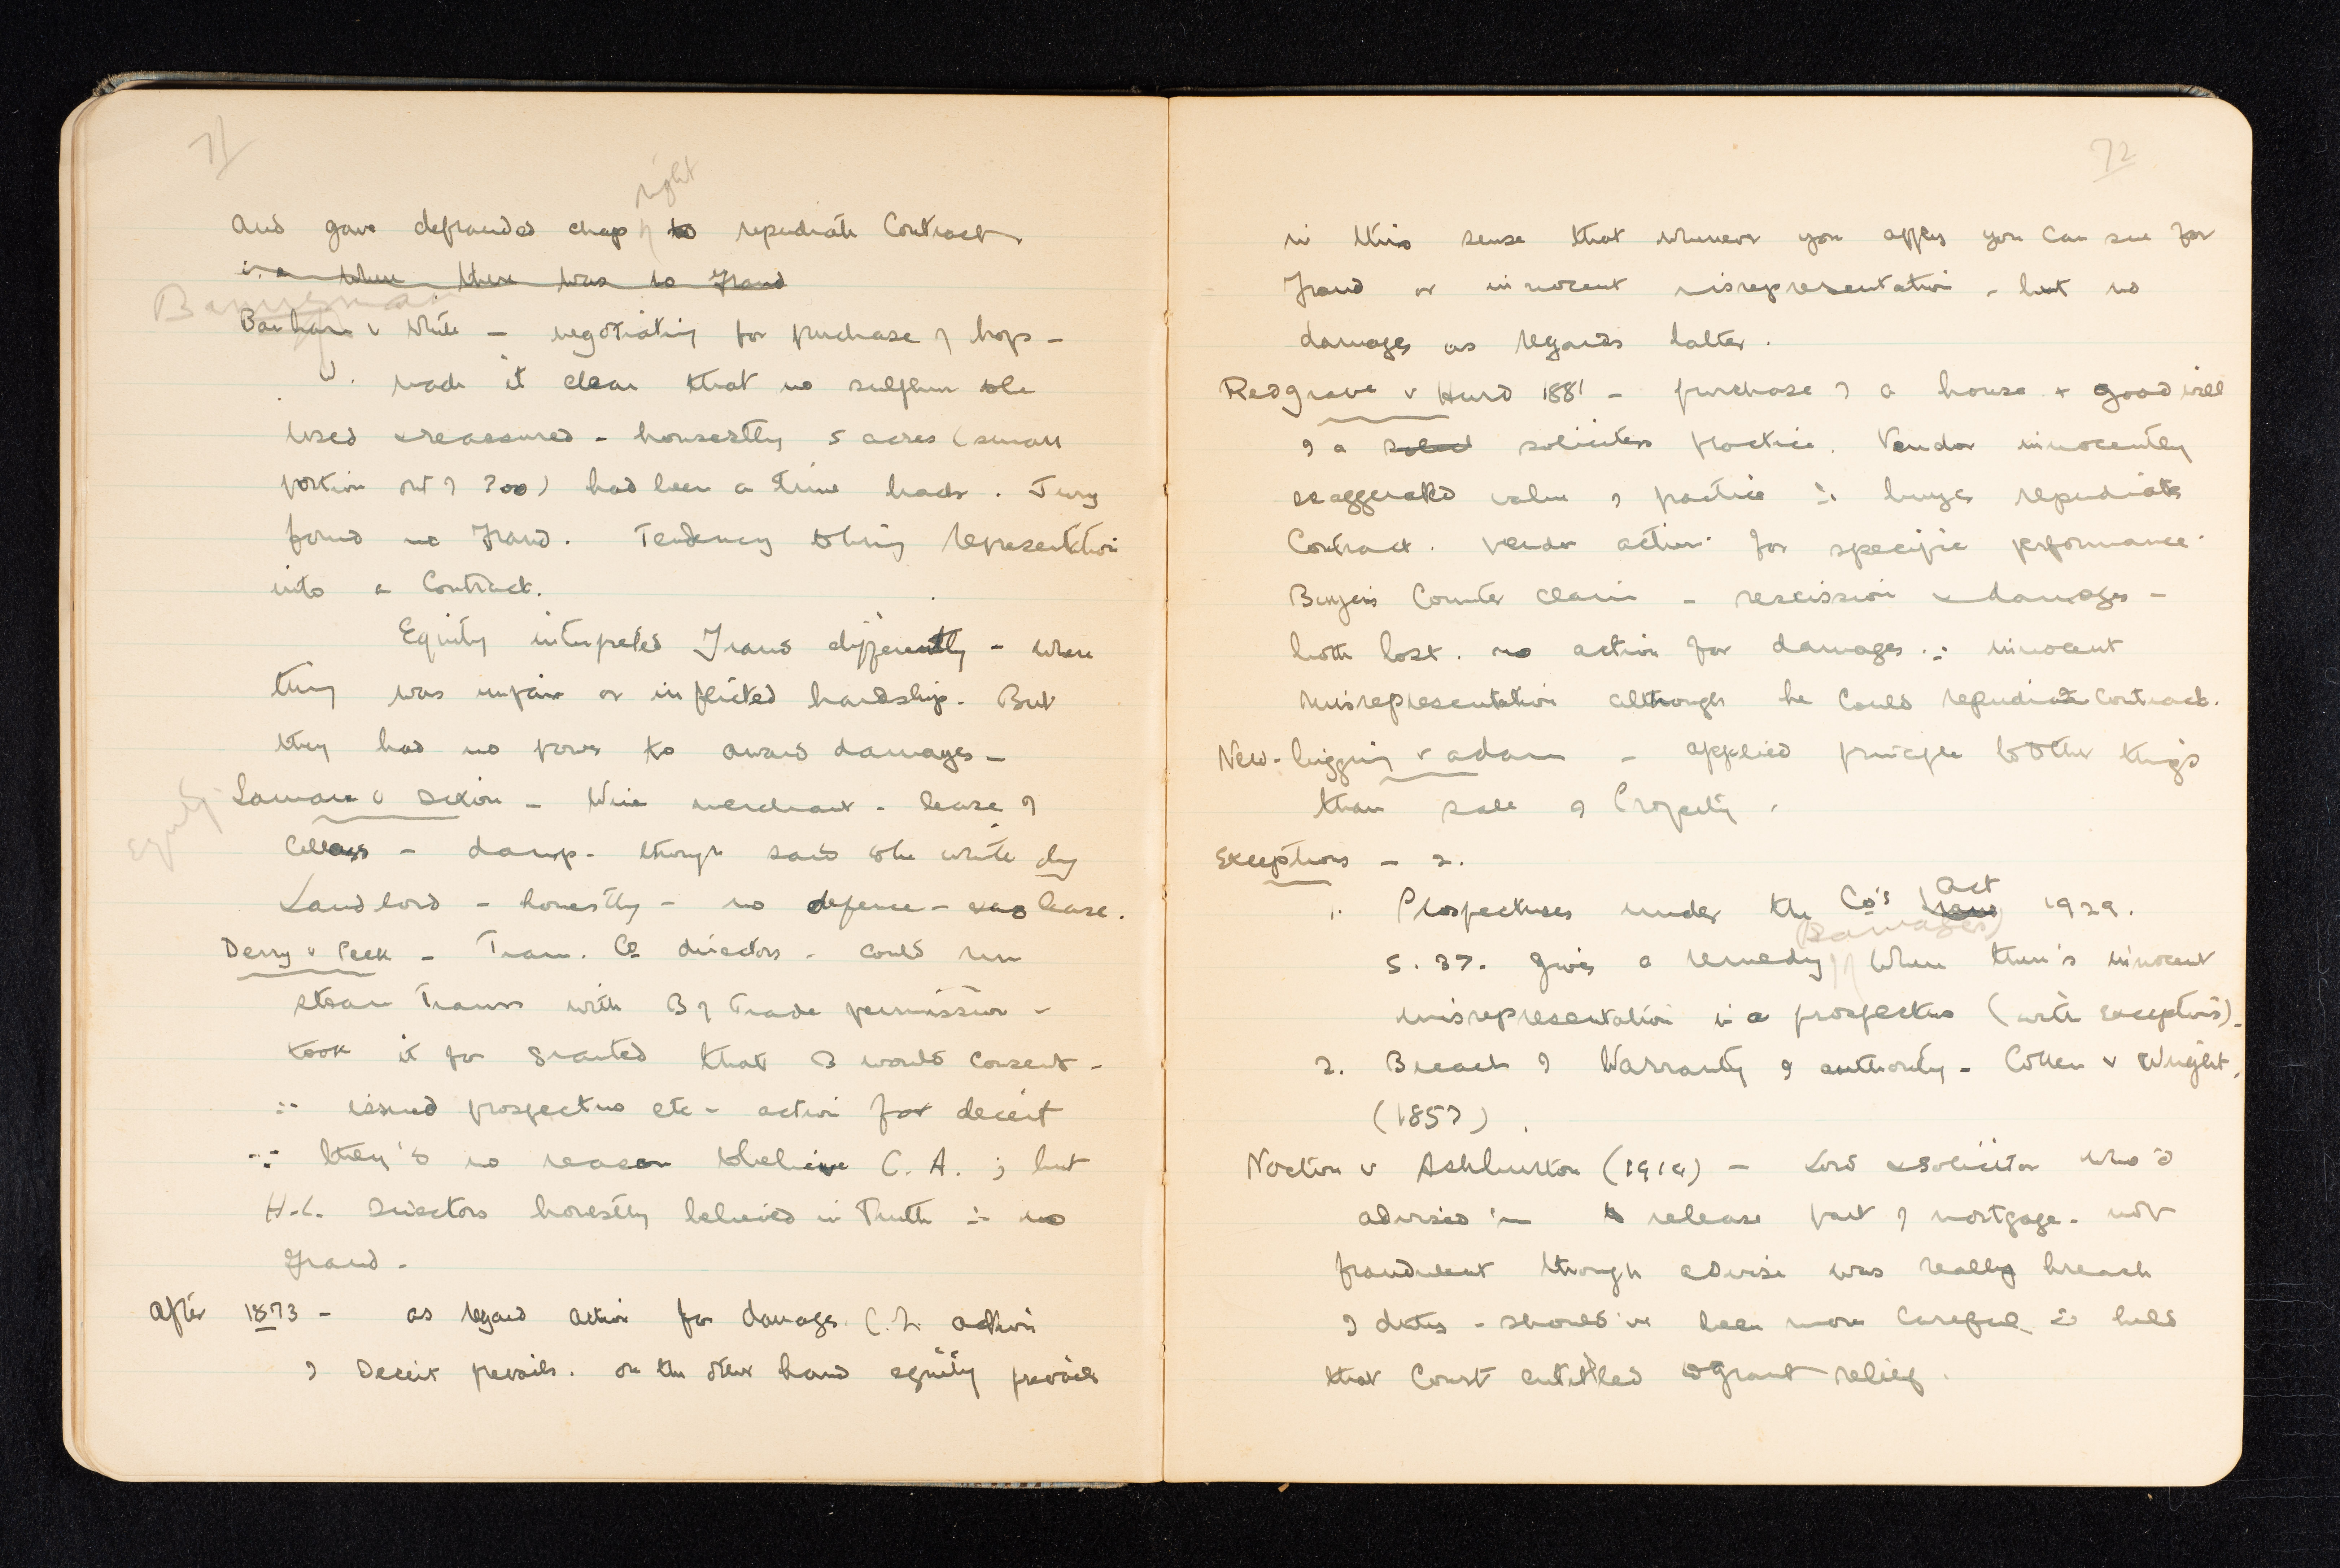 71
right
And gave defrauded chap to repudiate Contract
i.e. where there was no Fraud
Bannerman
Banham v White – negotiating for purchase of hops –
W. made it clear that no sulphur to be
used & reassured – honestly 5 acres (small
portion out of 300) had been a time back. Jury
found no Fraud. Tendency to bring representation
into a Contract.
Equity interpreted Fraud differently – where
thing was unfair or inflicted hardship. But
they had no power to award damages –
Equity
Lamare v Dixon – Wine merchant – lease of
Cellars – damp – though said to be quite dry
Landlord – honestly – no defence – lease.
Derry v Peek – Tram. Co directors – could run
steam Trams with B of Trade permission –
took it for granted that B would Consent –
∴ issued prospectus etc – action for deceit
∵ they'd no reason to believe C. A. ; but
H.L. Directors honestly believed in Truth ∴ no
Fraud –
After 1873 – as regard action for damages C.L. action
of Deceit prevails. On the other hand equity prevails
72
in this sense that whenever you apply you can sue for
Fraud or innocent misrepresentation – but no
damages as regards latter.
Redgrave v Hurd 1881 – purchase of a house & good will
of a solicitors practice. Vendor innocently
exaggerated value of practice ∴ buyer repudiates
Contract. Vendor action for specific performance.
Buyers Counter claim – rescission & damages –
both lost. no action for damages ∵ innocent
misrepresentation although he could repudiate Contract.
New-bigging v Adam – applied principle to other things
than sale of Property.
Exceptions – 2.
Act
1. Prospectuses under the Co's 1929.
(Damages)
S. 37. gives a remedy when there's innocent
misrepresentation in a prospectus (with exceptions).
2. Breach of Warranty of authority – Collen v Wright.
(1857).
Nocton v Ashburton (1914) – Lord & solicitor who'd
advised 'im to release part of mortgage – not
fraudulent though advise was really breach
of duty – should 've been more careful ∴ held
that Court entitled to grant relief.